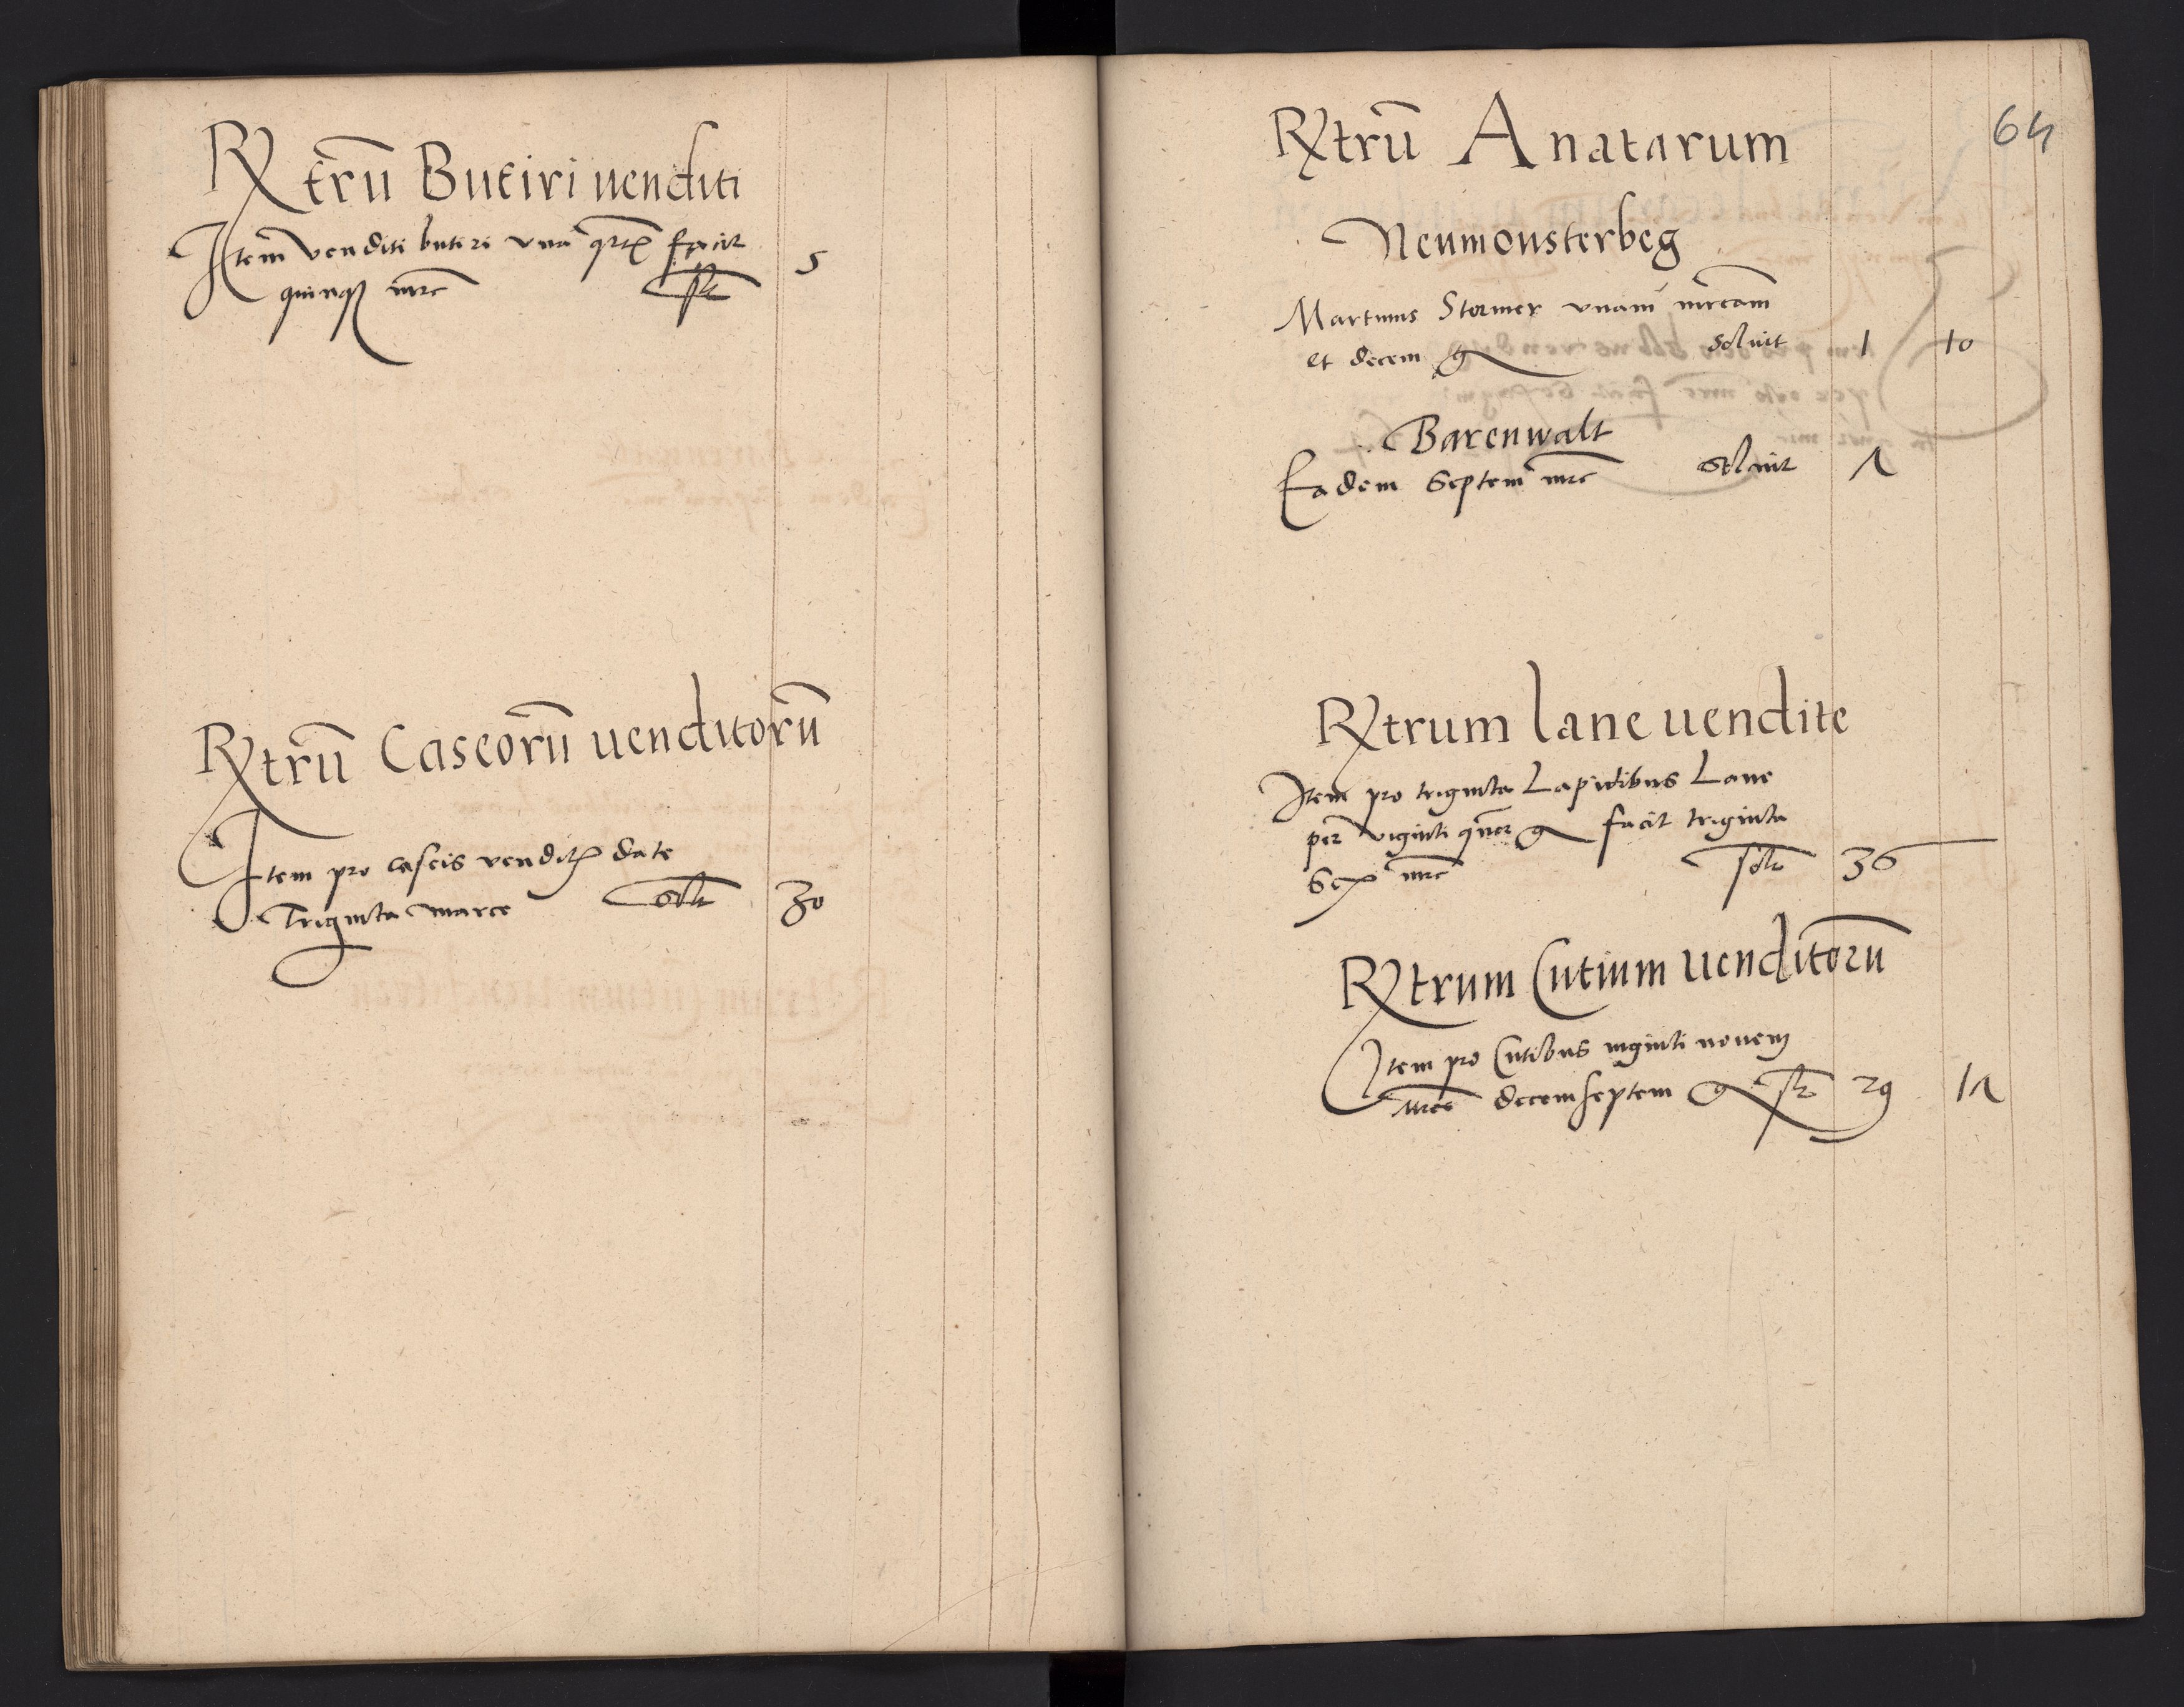 Rxtrū Butiri uenditi
Item venditi butiri vna facit
quinqȝ mrc 5
Rxtrū Caseorū uenditorū
Item pro caseis vendit date
Triginta marce solt 30
64
Rxtrū Anatarum
Neumonsterbeg
Martinus Stormer vnam mrcam
et decem g soluit 1 10
Barenwalt
Eadem Septem mrc soluit 7
Rxtrum lane uendite
Item pro triginta Lapidibus Lane
per viginti quor g facit triginta
Sex mrc solt 36
Rxtrum Cutium uenditorū
Item pro Cutibus viginti novem
mrce decemseptem g st 29 17